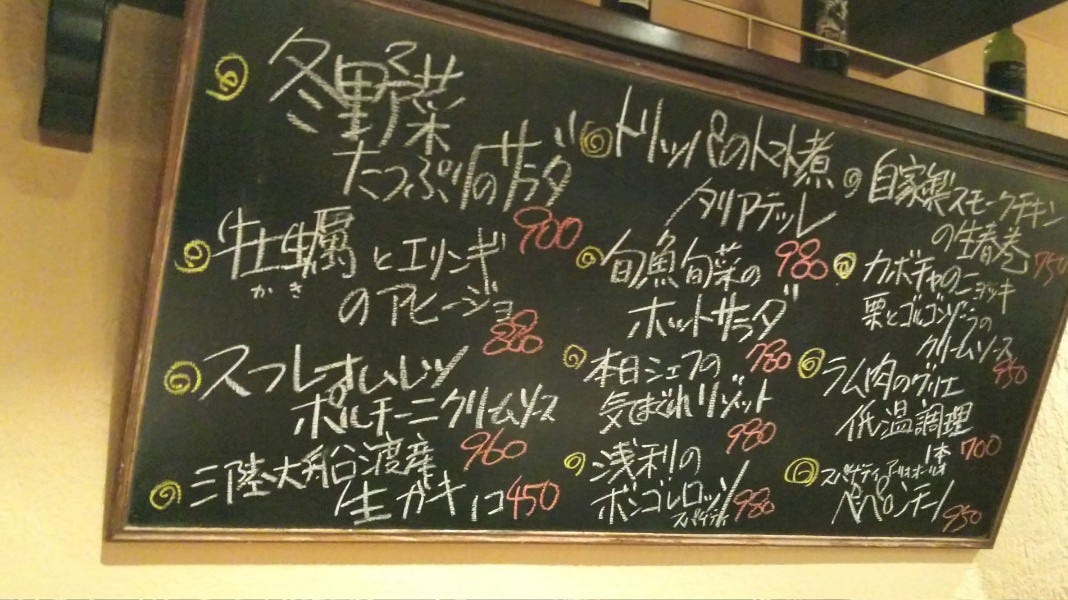 冬野菜
たっぷりのサラダ
900
牡蠣とエリンギ
かき
のアヒージョ
880
スフレオムレツ
ポルチーニクリームソース
960
三陸大船渡産
生ガキ 1コ 450
トリッパのトマト煮
タリアテッレ
980
旬魚旬菜の
ホットサラダ
780
本日シェフの
気まぐれリゾット
980
浅利の
ボンゴレロッソ
スパゲティ 980
自家製スモークチキン
の生春巻 750
カボチャのニョッキ
栗とゴルゴンゾーラの
クリームソース
950
ラム肉のグリエ
低温調理
1本 700
スパゲティ アーリオオーリオ
ペペロンチーノ 950